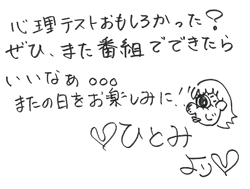 心理テストおもしろかった?
ぜひ、また番組でできたら
いいなぁ。。。
またの日をお楽しみに!!
♡ひとみ
より♡